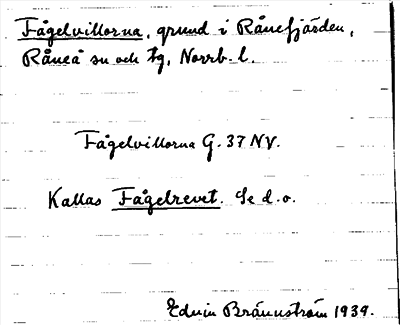 Fågelvillorna, grund i Rånefjärden,
Råneå sn och tg, Norrb. l.
Fågelvillorna G. 37 NV.
Kallas Fågelrevet. Se d.o.
Edvin Brännström 1939.